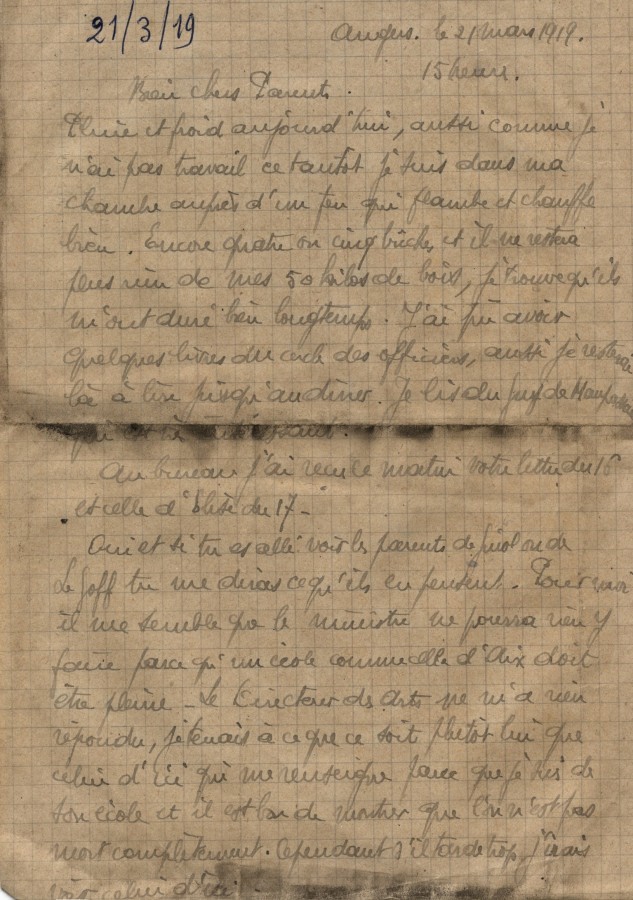 21/3/19
Angers. le 21 mars 1919.
15 heures.
Bien chers Parents.
Pluie et froid aujourd'hui, aussi comme je
n'ai pas travail ce tantôt je suis dans ma
chambre auprès d'un feu qui flambe et chauffe
bien. Encore quatre ou cinq bûches et il ne restera
plus rien de mes 50 kilos de bois, je trouve qu'ils
m'ont duré bien longtemps. J'ai pu avoir
quelques livres du cercle des officiers, aussi je resterai
là à lire jusqu'au dîner. Je lis du Guy de Maupassant
qui est très intéressant.
Au bureau j'ai reçu ce matin votre lettre du 16
et celle d'Elise du 17 -
Oui et si tu es allé voir les parents de
Le Goff tu me diras ce qu'ils en pensent. Pour moi
il me semble que le ministre ne pourra rien y
faire parce qu'un école comme celle d'Aix doit
être pleine - Le Directeur des Arts ne m'a rien
répondu, je tenais à ce que ce soit plutôt lui que
celui d'ici qui me renseigne parce que je suis de
son école et il est bon de montrer que l'on n'est pas
mort complètement. Cependant s'il tarde trop, j'irais
voir celui d'ici.